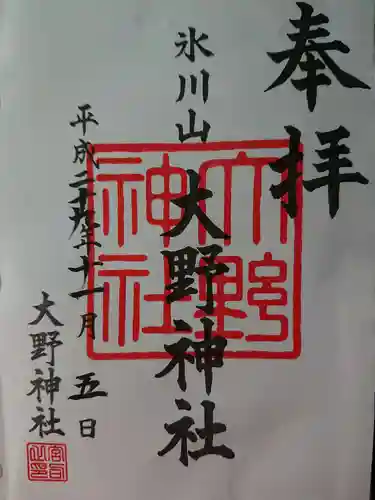 奉拝
氷川山
大野神社
大野神社
平成二十九年十一月五日
大野神社